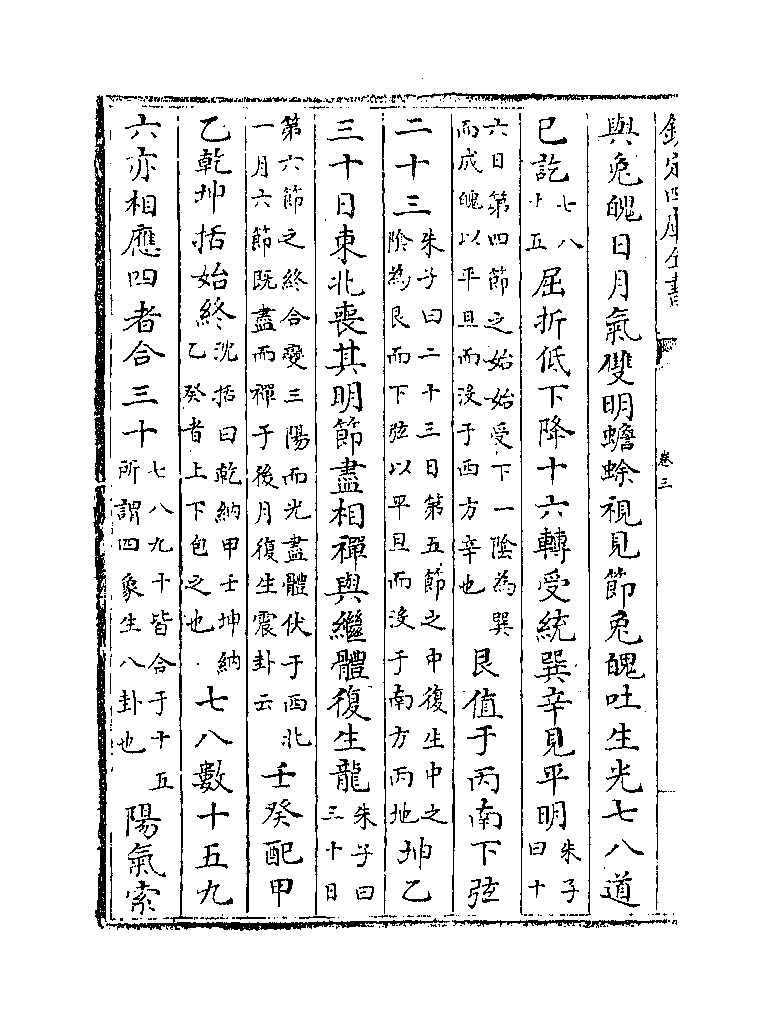 欽定四庫全書
卷三
與兔魄日月氣雙明蟾蜍視見節兔魄吐生光七八道
已訖七八十五屈折低下降十六轉受統巽辛見平明朱子曰十
六日第四節之始始受下一陰為巽而成魄以平旦而没于西方辛也艮值于丙南下弦
二十三朱子曰二十三日第五節之中復生中之陰為艮而下弦以平旦而没于南方丙地坤乙
三十日東北喪其明節盡相禪與繼體復生龍朱子曰三十日
第六節之終合變三陽而光盡體伏于西北一月六節既盡而禪于後月復生震卦云壬癸配甲
乙乾坤括始終沈括曰乾納甲壬坤納乙癸者上下包之也七八數十五九
六亦相應四者合三十七八九十皆合于十五所謂四象生八卦也陽氣索